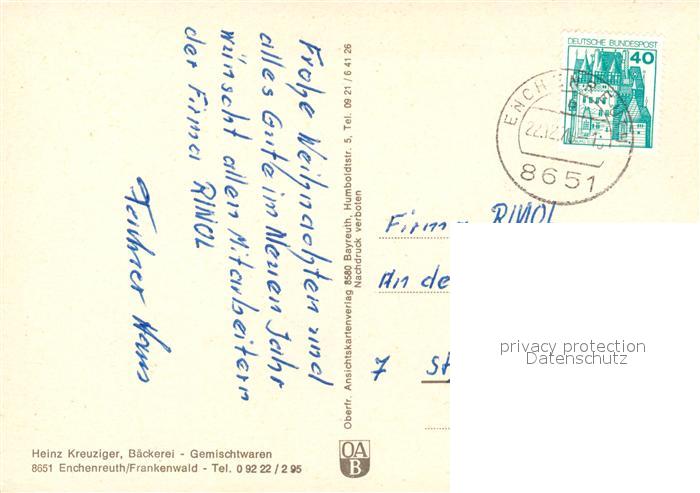 Frohe Weihnachten und
alles Gute im Neuen Jahr
wünscht allen Mitarbeitern
der Firma RINOL
Hans
Oberfr. Ansichtskartenverlag 8580 Bayreuth, Humboldtstr. 5, Tel. 09 21 / 6 41 26
Nachdruck verboten
DEUTSCHE BUNDESPOST
40
8651
Firma RINOL
An de
7 St
privacy protection
Datenschutz
Heinz Kreuziger, Bäckerei - Gemischtwaren
8651 Enchenreuth/Frankenwald - Tel. 0 92 22 / 2 95
OA
B